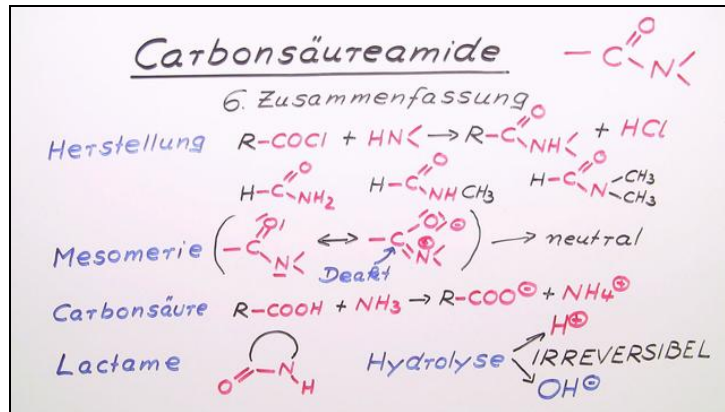 Carbonsäureamide —C(=O)—N<
6. Zusammenfassung
Herstellung R—COCl + HN< → R—C(=O)—NH< + HCl
H—C(=O)—NH2 H—C(=O)—NHCH3 H—C(=O)—N(CH3)CH3
Mesomerie (—C(=O)—N< ↔ —C(O⊖)=N⊕<) → neutral
Deakt
Carbonsäure R—COOH + NH3 → R—COO⊖ + NH4⊕
Lactame O=C—N—H Hydrolyse H⊕ IRREVERSIBEL OH⊖